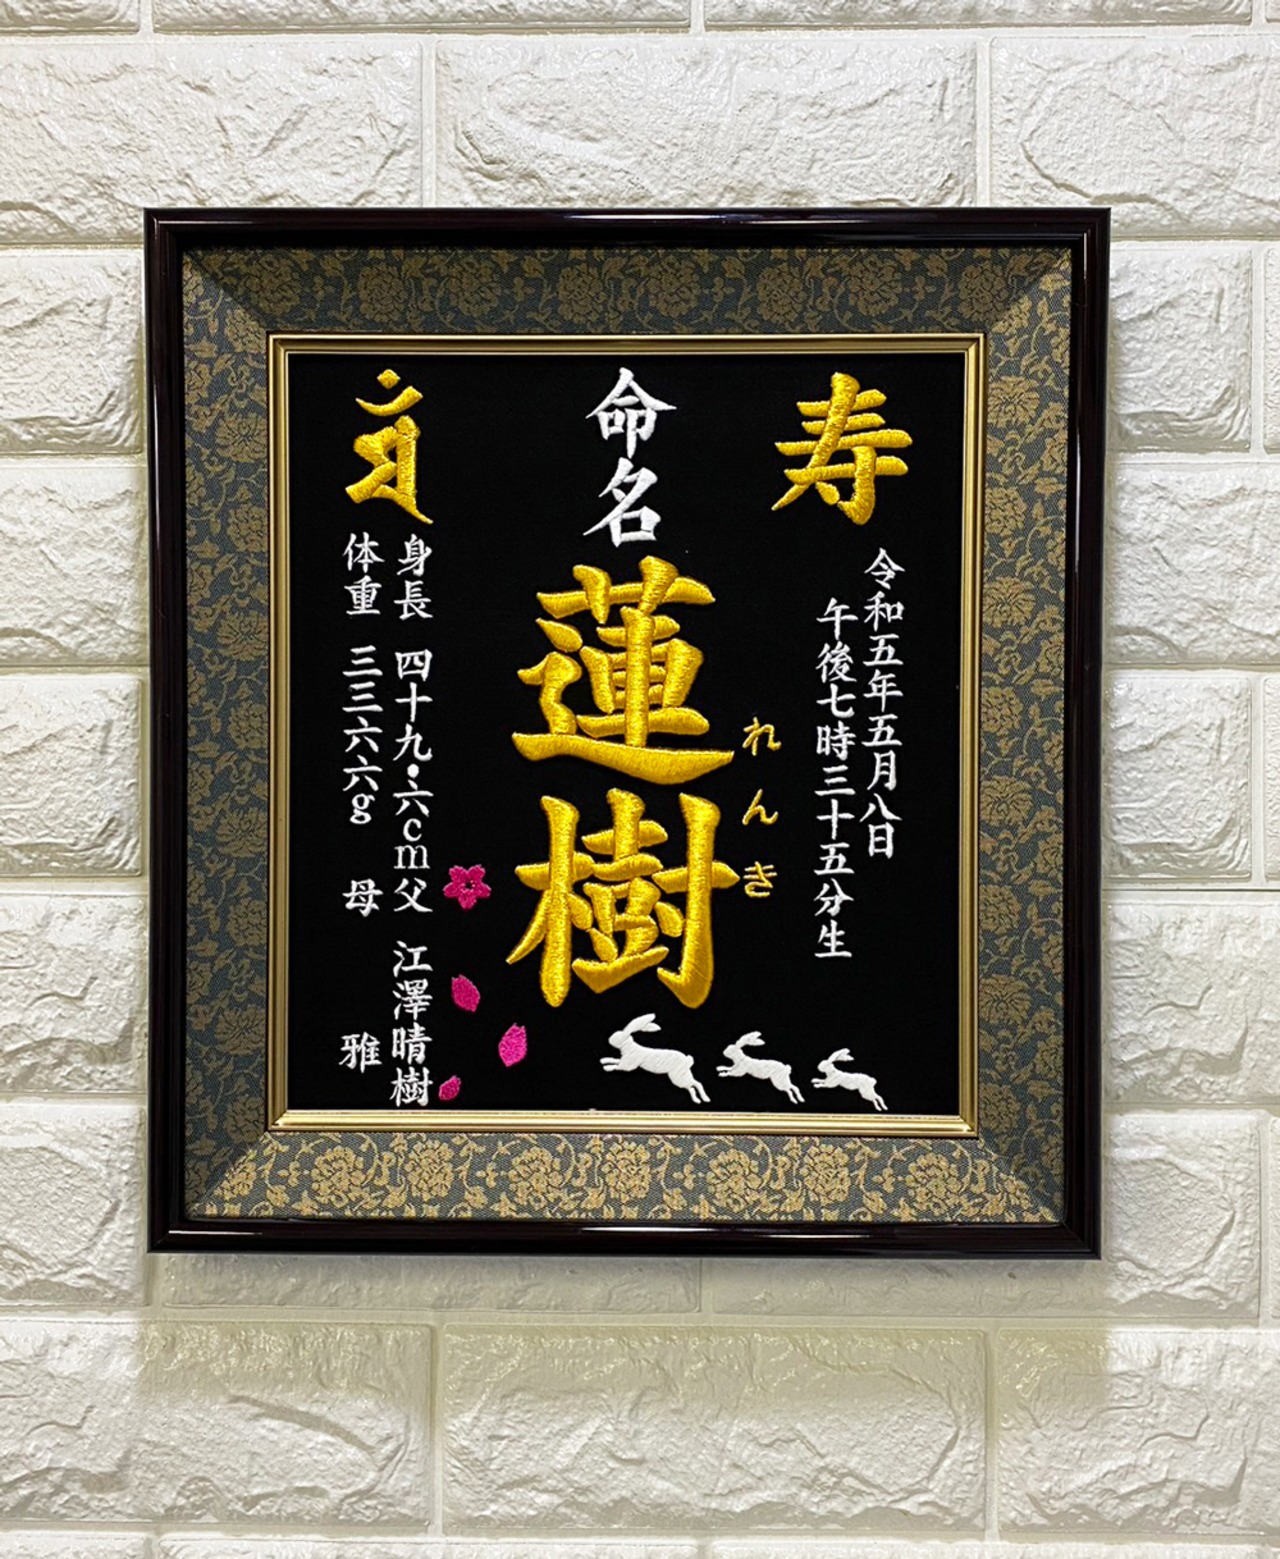 寿
令和五年五月八日
午後七時三十五分生
命名
蓮樹
れんき
身長 四十九・六cm 父 江澤晴樹
体重 三三六六g 母 雅